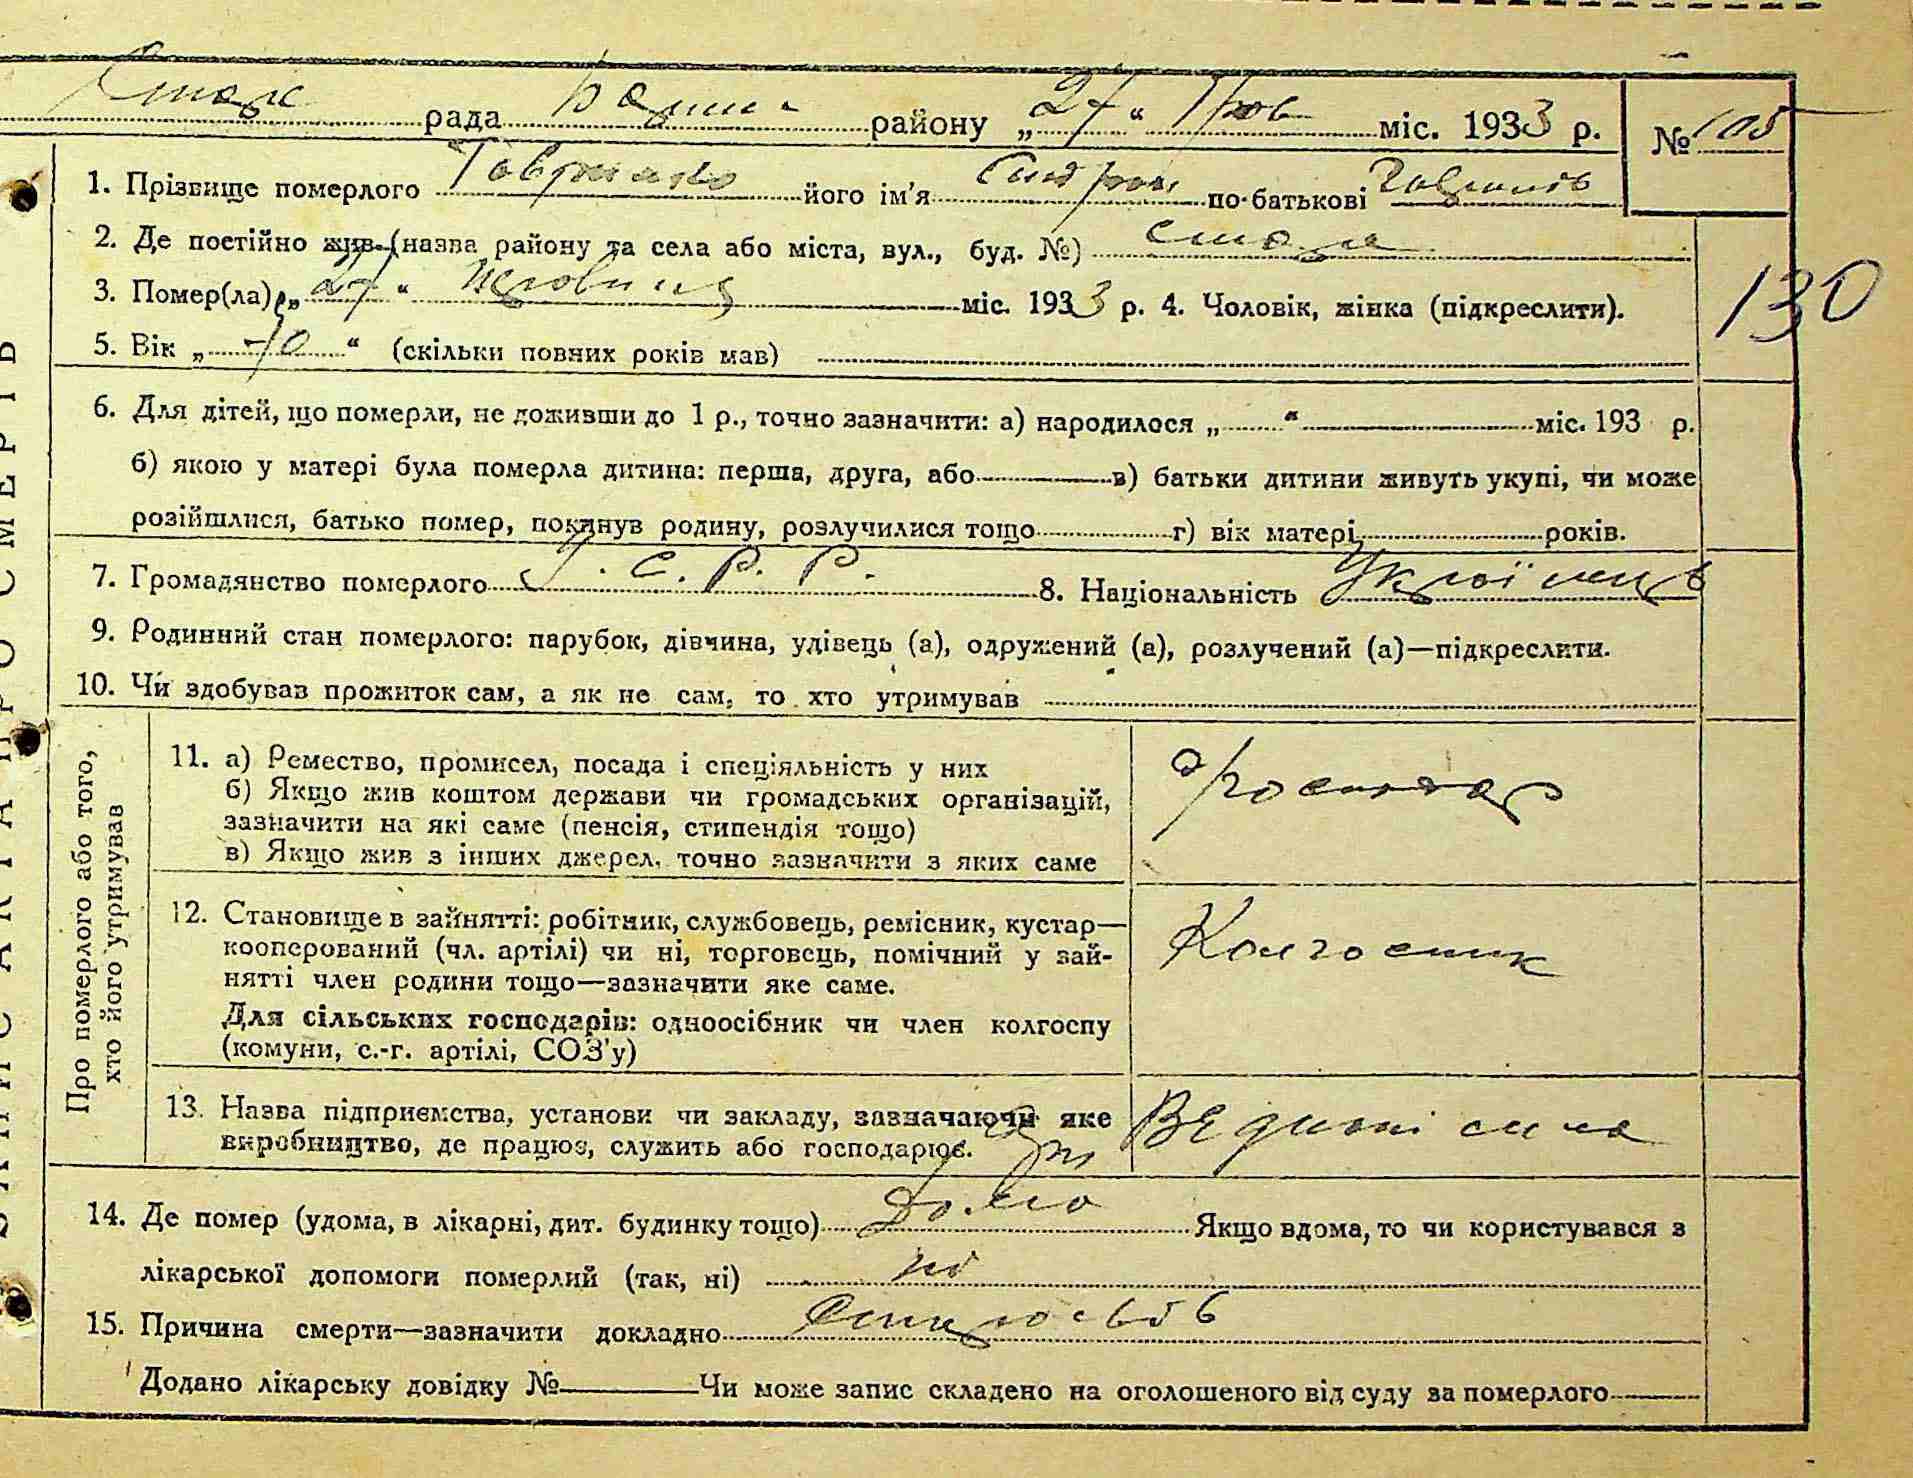 рада району „27“ міс. 1933 р. № 105
1. Прізвище померлого його ім'я по-батькові
2. Де постійно жив (назва району та села або міста, вул., буд. №)
3. Помер(ла) „27“ міс. 1933 р. 4. Чоловік, жінка (підкреслити).
130
5. Вік „70“ (скільки повних років мав)
6. Для дітей, що померли, не доживши до 1 р., точно зазначити: а) народилося „ “ міс. 193 р.
б) якою у матері була померла дитина: перша, друга, або в) батьки дитини живуть укупі, чи може
розійшлися, батько помер, покинув родину, розлучилися тощо г) вік матері років.
7. Громадянство померлого У. С. Р. Р. 8. Національність Українець
9. Родинний стан померлого: парубок, дівчина, удівець (а), одружений (а), розлучений (а)—підкреслити.
10. Чи здобував прожиток сам, а як не сам, то хто утримував
Про померлого або того,
хто його утримував
11. а) Ремество, промисел, посада і спеціяльність у них
б) Якщо жив коштом держави чи громадських організацій,
зазначити на які саме (пенсія, стипендія тощо)
в) Якщо жив з інших джерел, точно зазначити з яких саме
12. Становище в зайнятті: робітник, службовець, ремісник, кустар—
кооперований (чл. артілі) чи ні, торговець, помічний у зай-
нятті член родини тощо—зазначити яке саме.
Для сільських господарів: одноосібник чи член колгоспу
(комуни, с.-г. артілі, СОЗ'у)
Колгоспник
13. Назва підприємства, установи чи закладу, зазначаючи яке
виробництво, де працює, служить або господарює.
14. Де помер (удома, в лікарні, дит. будинку тощо) Дома Якщо вдома, то чи користувався з
лікарської допомоги померлий (так, ні) ні
15. Причина смерти—зазначити докладно
Додано лікарську довідку № Чи може запис складено на оголошеного від суду за померлого